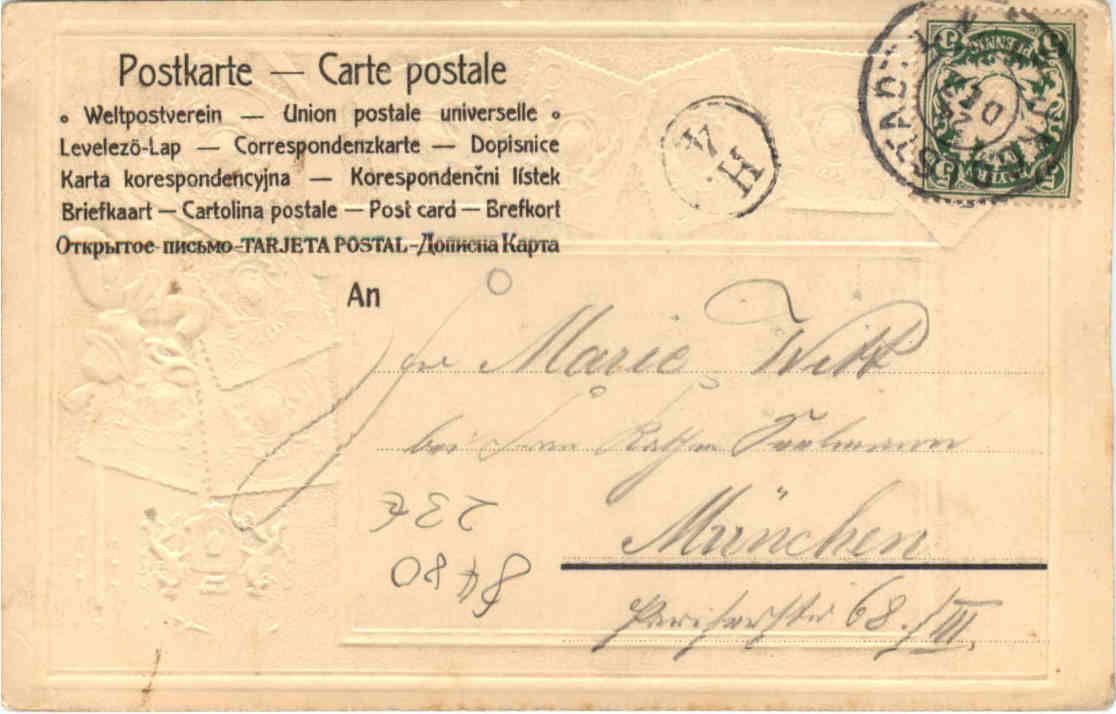 Postkarte — Carte postale
Weltpostverein — Union postale universelle
Levelező-Lap — Correspondenzkarte — Dopisnice
Karta korespondencyjna — Korespondenčni lístek
Briefkaart — Cartolina postale — Post card — Brefkort
Открытое письмо-TARJETA POSTAL-Дописна Карта
PFENNIG
BAYERN
H
An
Marie Witt
bei Frau
München
Pariserstr 68./III.
23 €
8480